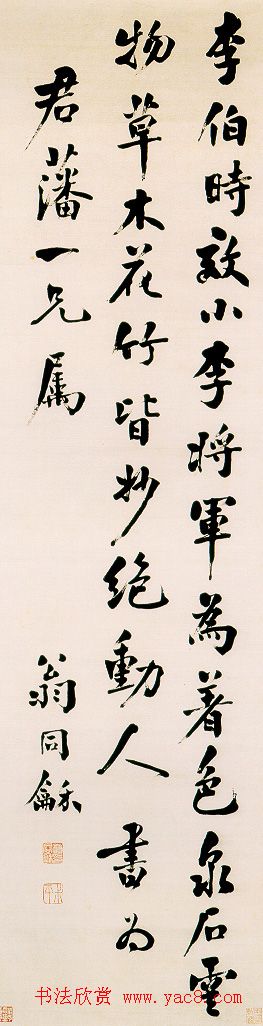 李伯時效小李將軍為著色泉石雲
物草木花竹皆妙絶動人書為
君藩一兄属
翁同龢
书法欣赏 www.yac8.com